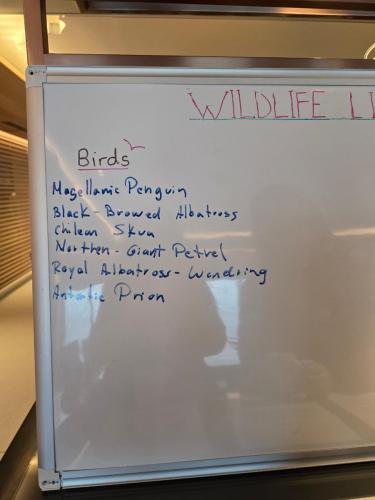 WILDLIFE LI
Birds
Magellanic Penguin
Black-Browed Albatross
Chilean Skua
Northen-Giant Petrel
Royal Albatross-Wandring
Antatic Prion